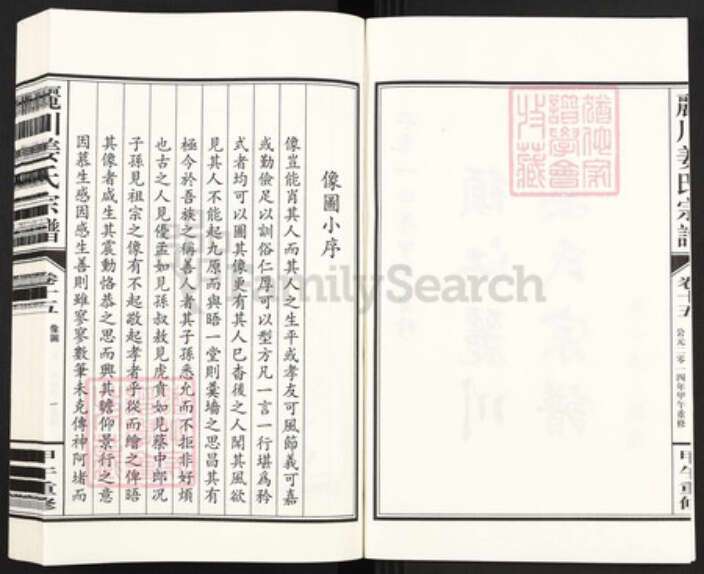 像圖小序
像豈能肖其人而其人之生平或孝友可風節義可嘉
或勤儉足以訓俗仁厚可以型方凡一言一行堪為矜
式者均可以圖其像更有其人已杳後之人聞其風欲
見其人不能起九原而與晤一堂則羹墻之思昌其有
極今於吾族之稱善人者其子孫悉允而不拒非好煩
也古之人見優孟如見孫叔敖見虎賁如見蔡中郎况
子孫見祖宗之像有不起敬起孝者乎從而繪之俾晤
其像者咸生其震動恪恭之思而興其瞻仰景行之意
因慕生感因感生善則雖寥寥數筆未克傳神阿堵而
麗川姜氏宗譜
卷十五
像圖
一
甲午重修
麗川姜氏宗譜
卷十五
公元二零一四年甲午重修
甲午重修
猶他家譜學會特藏
FamilySearch